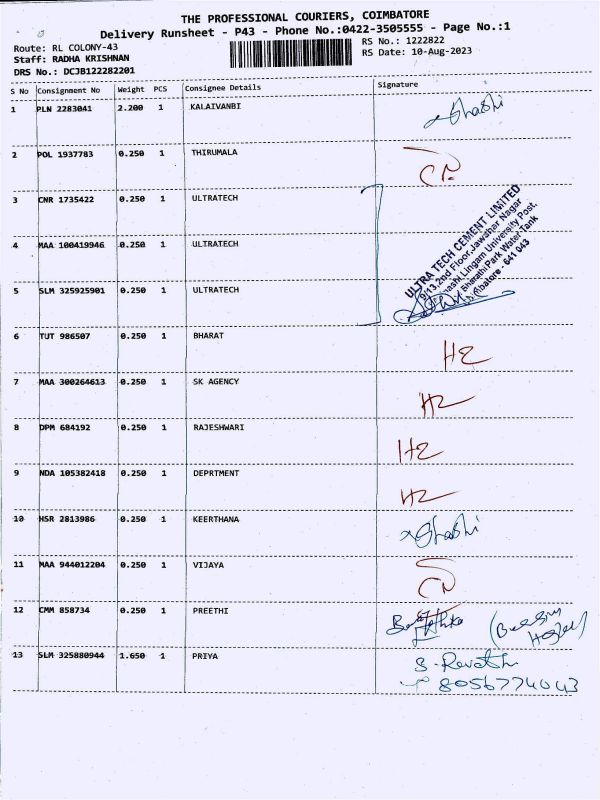 THE PROFESSIONAL COURIERS, COIMBATORE
Delivery Runsheet - P43 - Phone No.:0422-3505555 - Page No.:1
Route: RL COLONY-43
Staff: RADHA KRISHNAN
DRS No.: DCJB122282201
RS No.: 1222822
RS Date: 10-Aug-2023
S No Consignment No Weight PCS Consignee Details Signature
1 PLN 2283041 2.200 1 KALAIVANBI
2 POL 1937783 0.250 1 THIRUMALA
3 CNR 1735422 0.250 1 ULTRATECH
4 MAA 100419946 0.250 1 ULTRATECH
5 SLM 325925901 0.250 1 ULTRATECH
ULTRA TECH CEMENT LIMITED
2nd Floor, Jawahar Nagar
Lingam University Post,
Bharathi Park Water Tank
641 043
6 TUT 986507 0.250 1 BHARAT
7 MAA 300264613 0.250 1 SK AGENCY
8 DPM 684192 0.250 1 RAJESHWARI
9 NDA 105382418 0.250 1 DEPRTMENT
10 HSR 2813986 0.250 1 KEERTHANA
11 MAA 944012204 0.250 1 VIJAYA
12 CMM 858734 0.250 1 PREETHI
13 SLM 325880944 1.650 1 PRIYA
8056774043